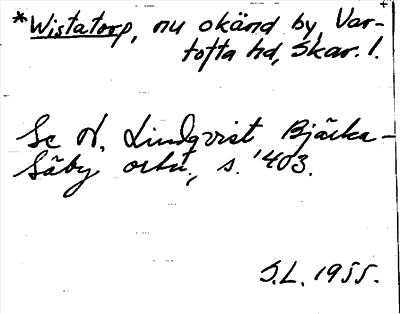 *Wistatorp, nu okänd by, Var-
tofta hd, Skar. l.
Se N. Lindqvist Bjärka-
Säby ortn., s. 403.
S.L. 1955.